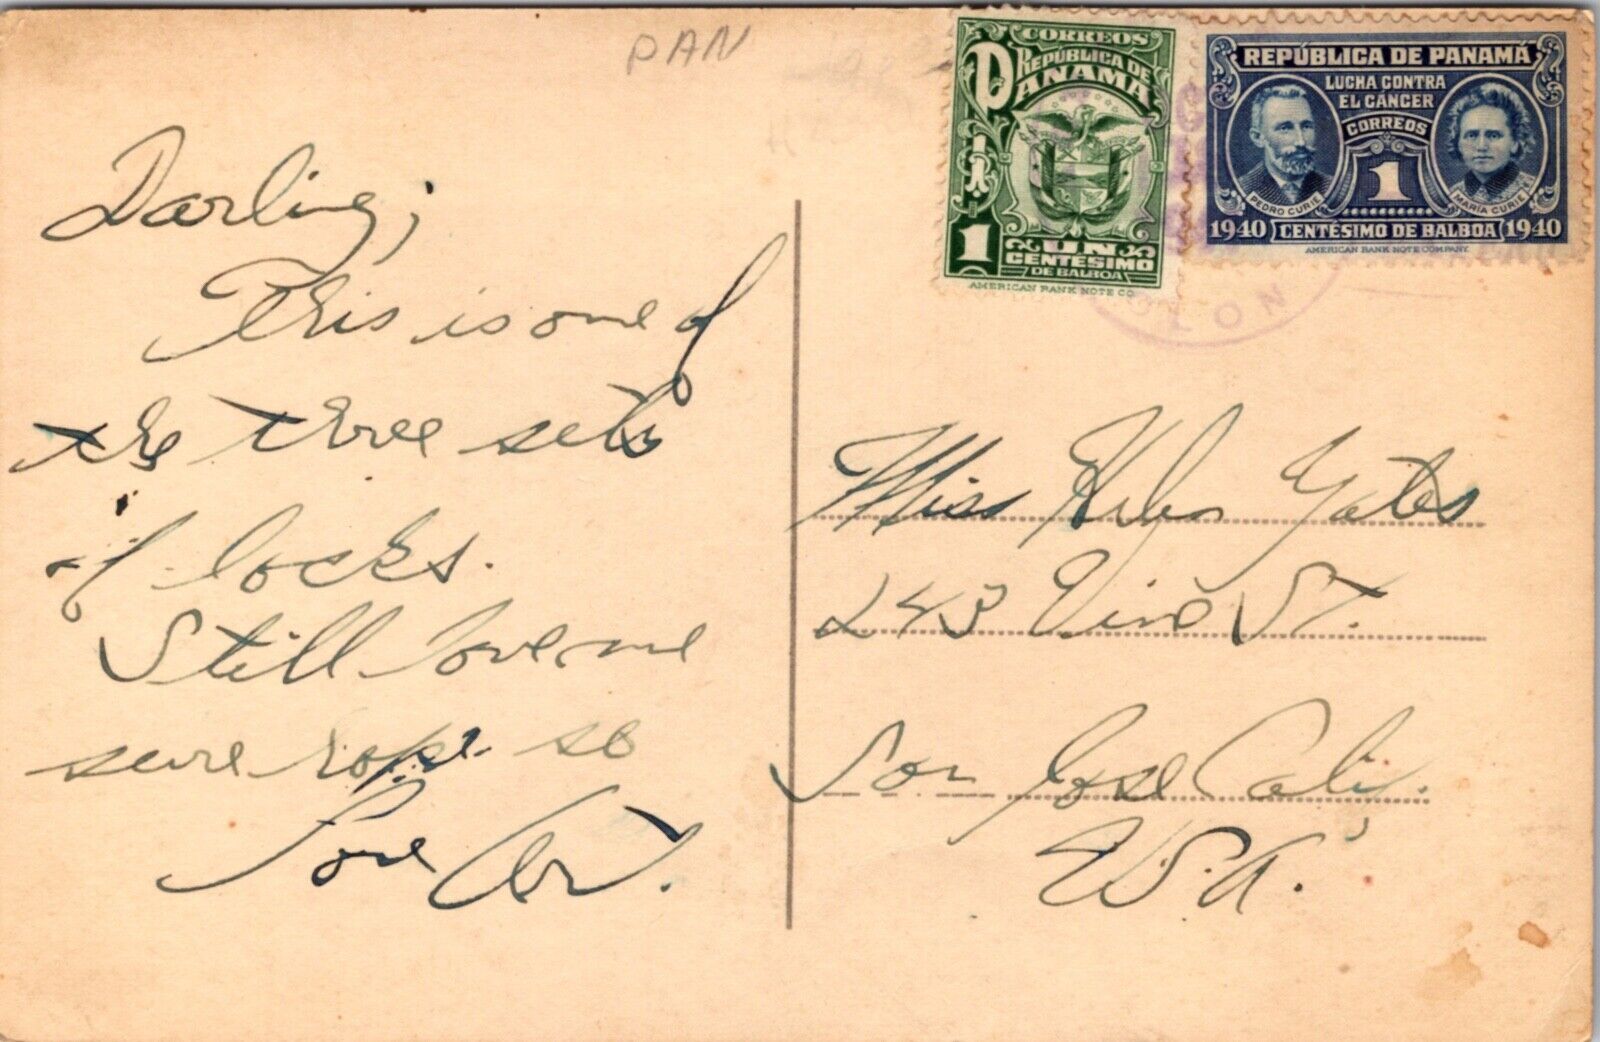 PAN
CORREOS
REPÚBLICA DE
PANAMA
1
UN
CENTESIMO
DE BALBOA
AMERICAN BANK NOTE CO.
REPÚBLICA DE PANAMÁ
LUCHA CONTRA
EL CÁNCER
CORREOS
1
PEDRO CURIE
MARÍA CURIE
1940 CENTÉSIMO DE BALBOA 1940
AMERICAN BANK NOTE COMPANY.
COLON
Darling;
This is one of
the three sets
of locks.
Still love me
sure hope so
Love Art.
Miss Helen Yates
243 Vine St.
San Jose Calif.
U.S.A.